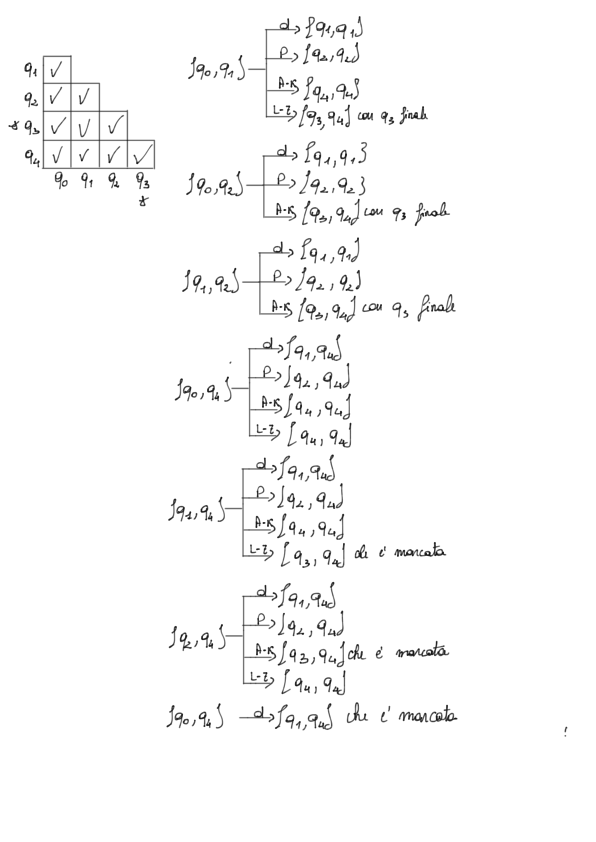 q1 ✓
q2 ✓ ✓
* q3 ✓ ✓ ✓
q4 ✓ ✓ ✓ ✓
q0 q1 q2 q3
*
{q0,q1} d→ {q1,q1}
P→ {q2,q2}
A-K→ {q4,q4}
L-Z→ {q3,q4} con q3 finale
{q0,q2} d→ {q1,q1}
P→ {q2,q2}
A-K→ {q3,q4} con q3 finale
{q1,q2} d→ {q1,q1}
P→ {q2,q2}
A-K→ {q3,q4} con q3 finale
{q0,q4} d→ {q1,q4}
P→ {q2,q4}
A-K→ {q4,q4}
L-Z→ {q4,q4}
{q1,q4} d→ {q1,q4}
P→ {q2,q4}
A-K→ {q4,q4}
L-Z→ {q3,q4} che e' marcata
{q2,q4} d→ {q1,q4}
P→ {q2,q4}
A-K→ {q3,q4} che e' marcata
L-Z→ {q4,q4}
{q0,q4} d→ {q1,q4} che e' marcata
!